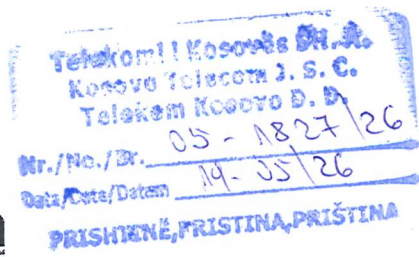 Telekomi i Kosovës SH.A.
Kosovo Telecom J. S. C.
Telekom Kosovo D. D.
Nr./No./Br. 05 - 1827/26
Data/Date/Datum 19-05/26
PRISHTINË,PRISTINA,PRIŠTINA